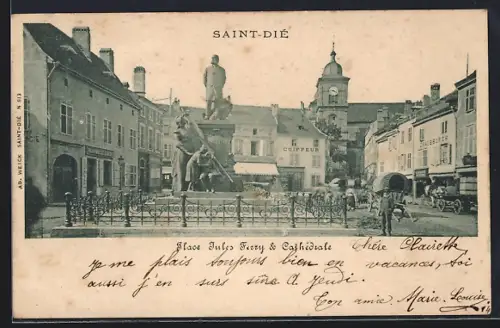 SAINT-DIÉ
AD. WEICK SAINT-DIÉ N 913
COIFFEUR
Place Jules Ferry & Cathédrale
Chère Claire
Je me plais toujours bien en vacances, toi
aussi j'en suis sûre à Jeudi.
Ton amie Marie Louise